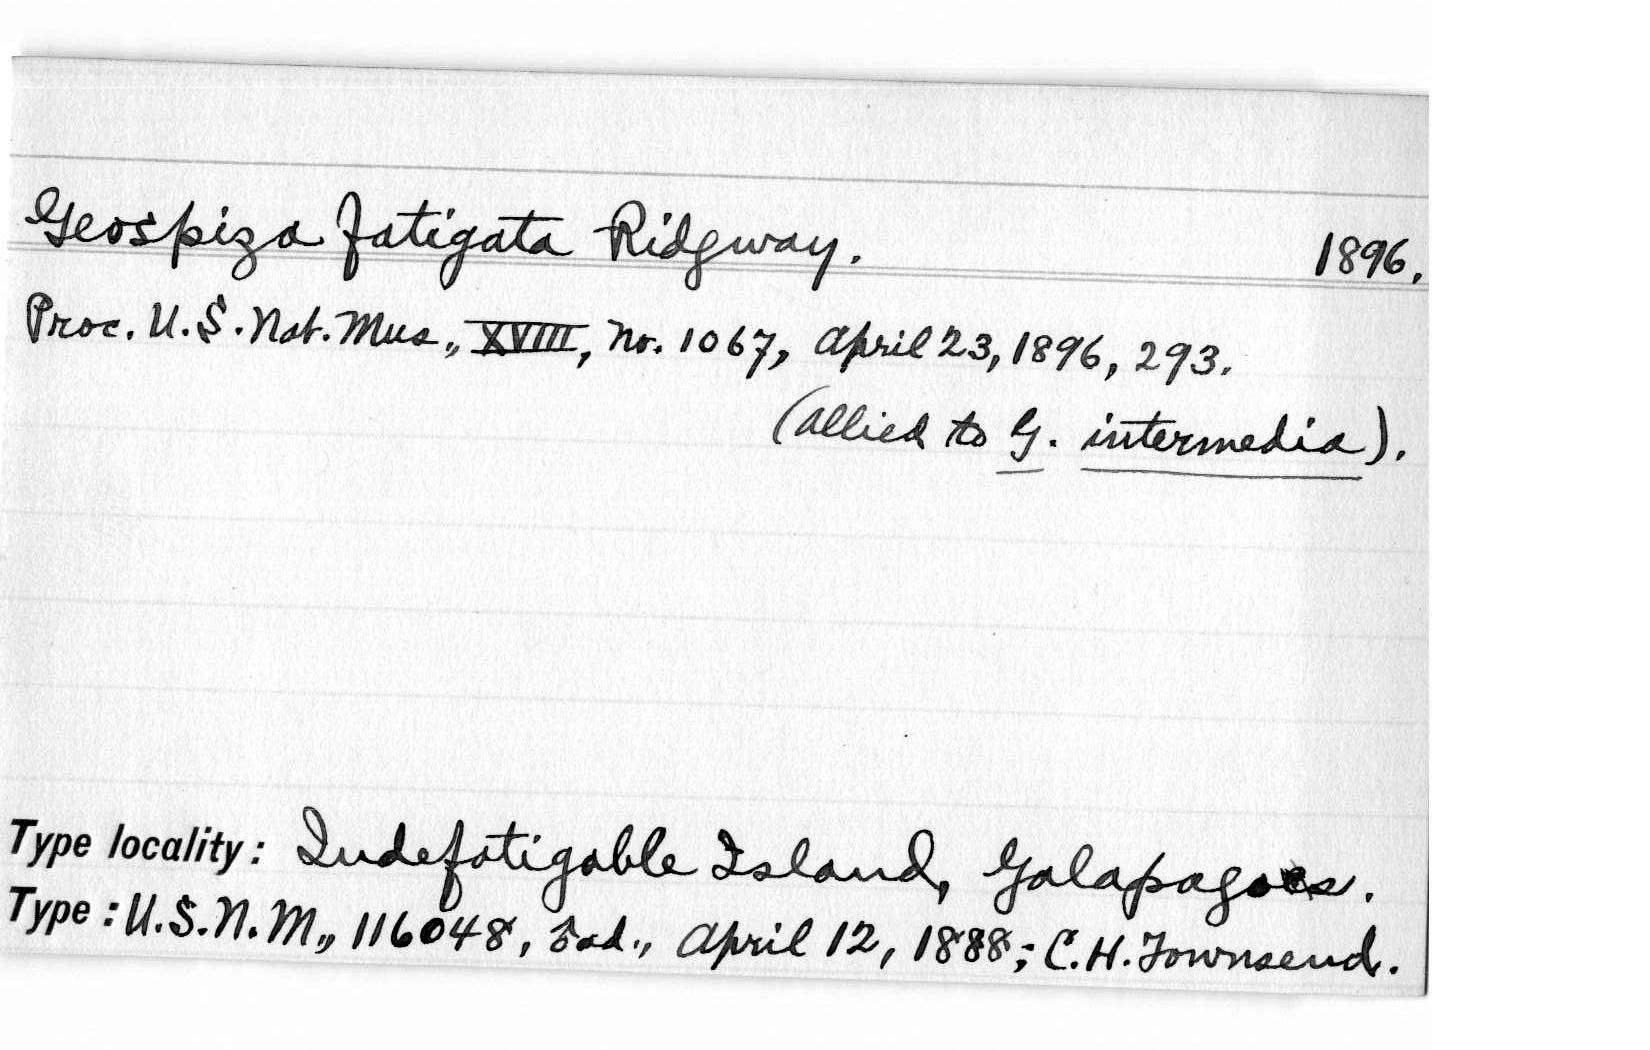 Geospiza fatigata Ridgway. 1896.
Proc. U.S. Nat. Mus., XVIII, No. 1067, April 23, 1896, 293.
(Allied to G. intermedia).
Type locality: Indefatigable Island, Galapagos.
Type: U.S.N.M., 116048, ad., April 12, 1888; C.H. Townsend.